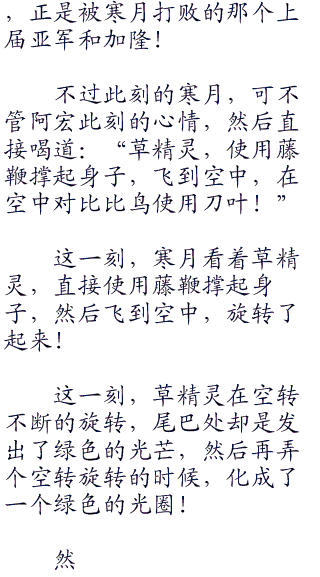 ，正是被寒月打败的那个上
届亚军和加隆！
不过此刻的寒月，可不
管阿宏此刻的心情，然后直
接喝道：“草精灵，使用藤
鞭撑起身子，飞到空中，在
空中对比比鸟使用刀叶！”
这一刻，寒月看着草精
灵，直接使用藤鞭撑起身
子，然后飞到空中，旋转了
起来！
这一刻，草精灵在空转
不断的旋转，尾巴处却是发
出了绿色的光芒，然后再弄
个空转旋转的时候，化成了
一个绿色的光圈！
然